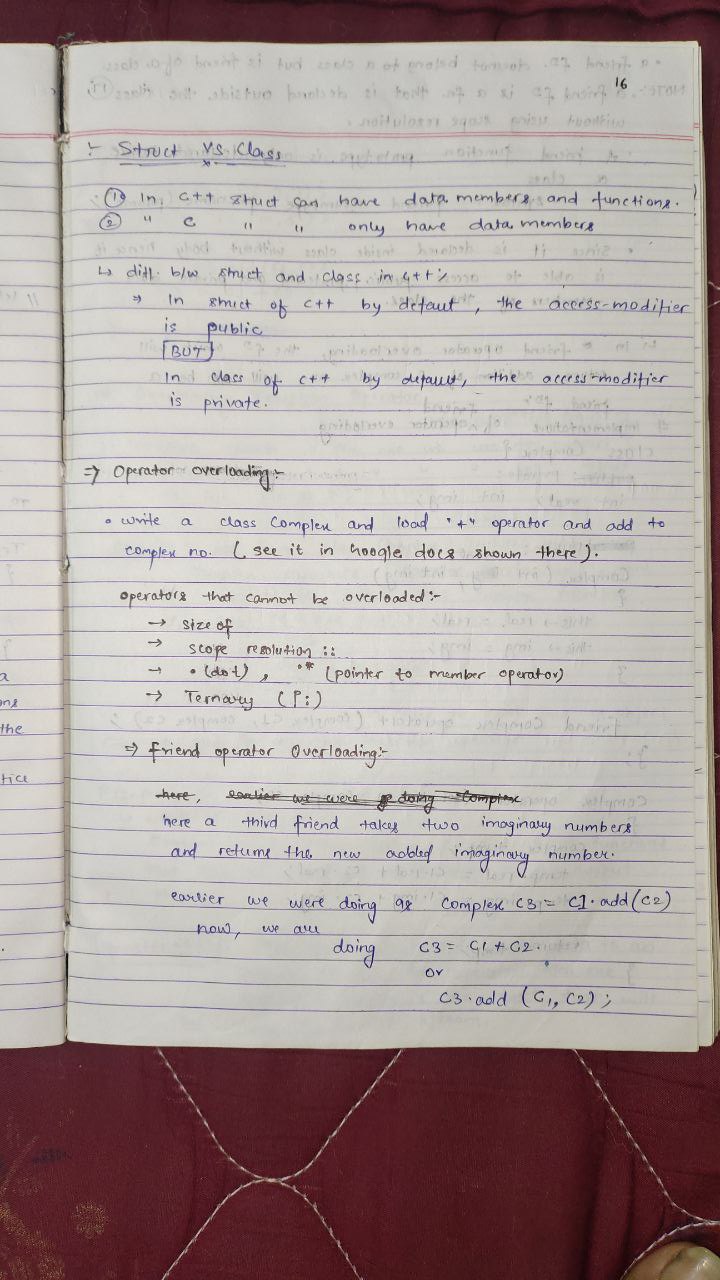 16
:- Struct vs Class
① In C++ struct can have data members and functions.
② " C " " only have data members
↳ diff. b/w struct and class in C++ :-
⇒ In struct of C++ by defaut, the access-modifier
is public
[BUT]
In class of C++ by default, the access-modifier
is private.
⇒ Operator overloading:-
• write a class Complex and load "+" operator and add to
complex no. ( see it in Google docs shown there ).
operators that cannot be overloaded:-
→ size of
→ scope resolution ::
→ • (dot) , •* (pointer to member operator)
→ Ternary (?:)
⇒ friend operator Overloading:-
here, earlier we were doing Complex
here a third friend takes two imaginary numbers
and returns the new added imaginary number.
earlier we were doing as Complex C3 = C1.add(C2)
now, we are
doing C3 = C1 + C2.
or
C3.add (C1, C2) ;
a
ons
the
tice